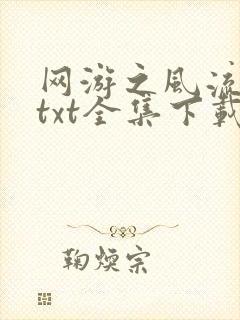 网游之风流
txt全集下载
鞠煐宗